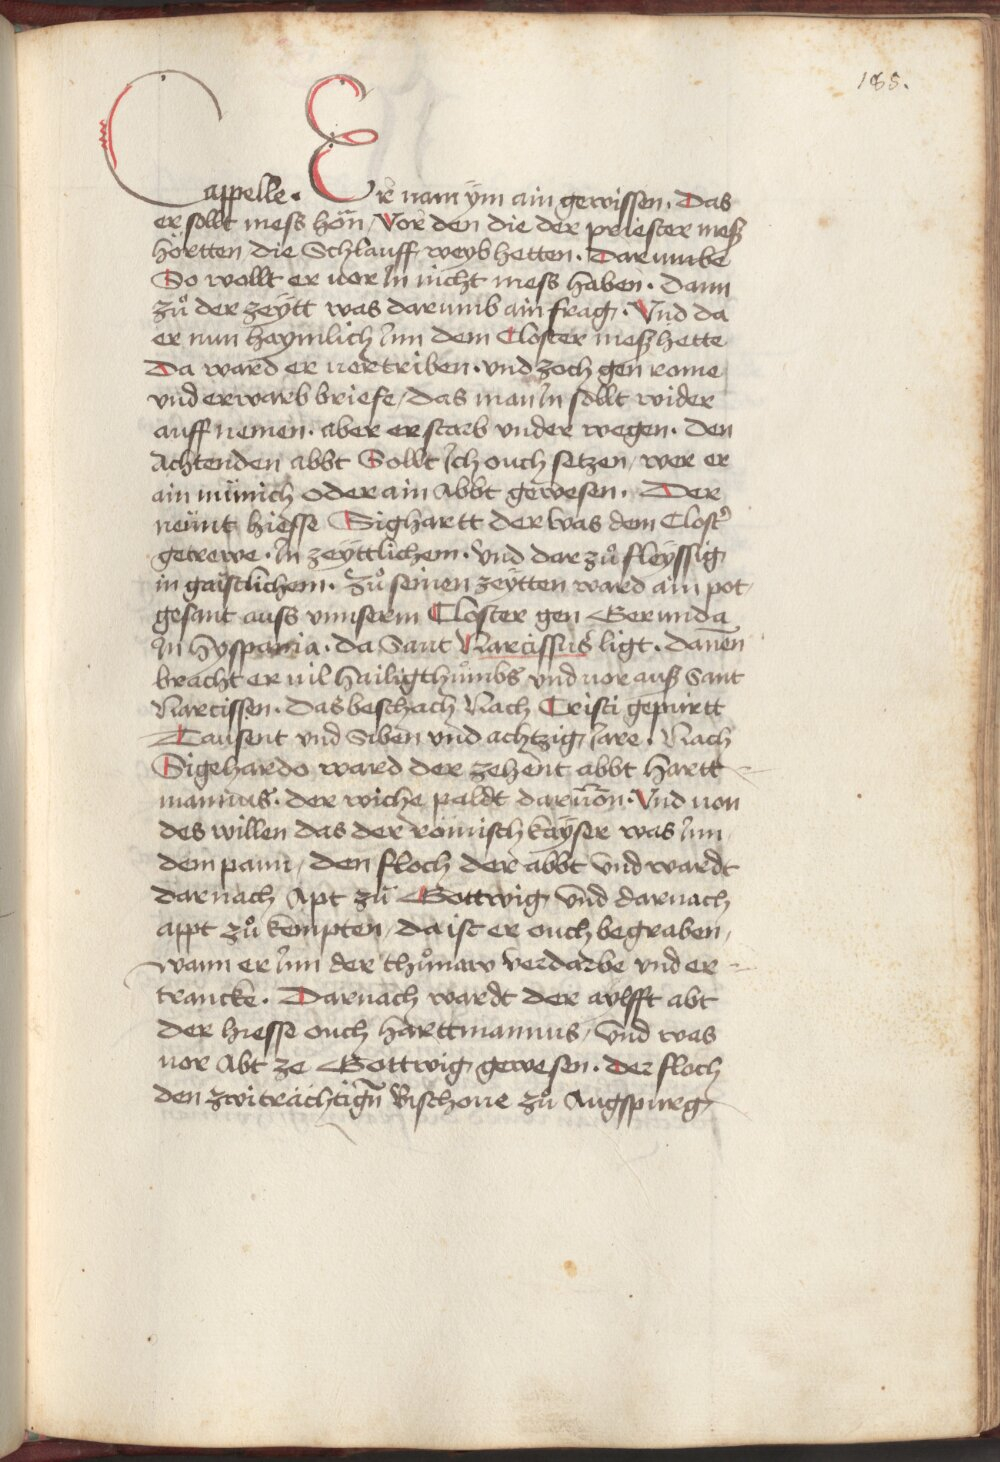 185.
Cappelle. Er nam ÿm ain gewissen. Das
er sollt mess hörn / Vor den die der priester meß
hörtten die Schlauff weyb hetten. Darumbe
So wollt er vor In nicht mess haben. dann
zů der zeÿtt was darumb ain frag. Vnd da
er nun haymlich Inn dem Closter meß hette
Da ward er vertriben. vnd zoch gen rome
vnd erwarb briefe / das man In sollt wider
auff nemen. aber er starb vnder wegen. den
Achtenden abbt Sollt Ich ouch setzen / wer er
ain münich oder ain Abbt gewesen. Der
neünt hiesse Sighartt der was dem Clostʼ
getrewe. In zeÿttlichem. vnd dar zů fleÿssig
in gaistlichem. Zů seinen zeÿtten ward ain pot
gesant auss vnnserm Closter gen Gerunda
In hyspania. da Sant Narcissus ligt. dannen
bracht er vil hailigthůmbs vnd vor auß Sant
Narcissen. das beschach Nach Cristi gepurtt
Tausent vnd Siben vnd achtzig Iare. Nach
Sigehardo ward der zehent abbt hartt
mannus. der wiche paldt daruon. Vnd von
des willen das der römisch kaÿser was Inn
dem pann / den floch der abbt vnd wardt
darnach Apt zů Gottwig vnd darnach
appt zů kempten / da ist er ouch begraben /
wann er Inn der thůnaw verdarbe vnd er
trancke. Darnach wardt der aylfft abt
der hiesse ouch harttmannus / vnd was
vor Abt ze Gottwig gewesen. der floch
den zwiträchtign̄ Bischoue zů Augspurg